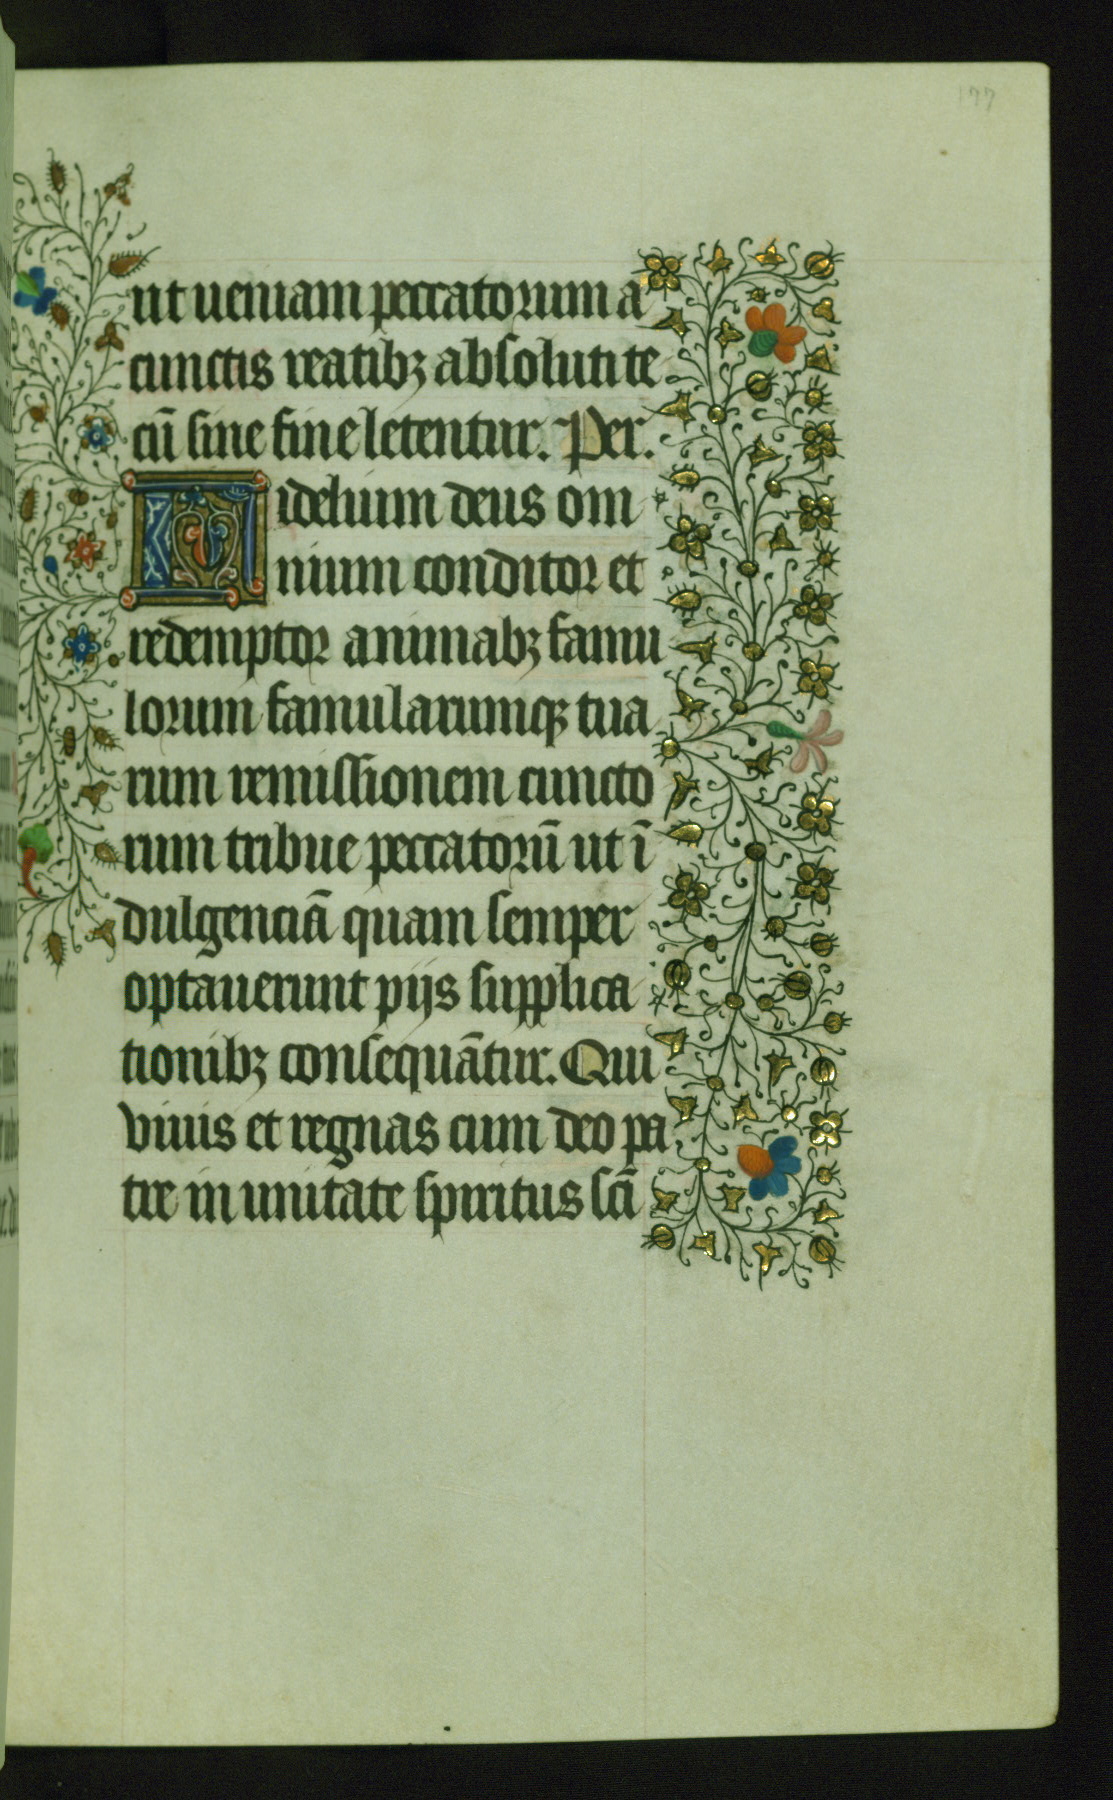 177
ut ueniam peccatorum a
cunctis reatibꝫ absoluti te
cū sine fine letentur. Per.
Fidelium deus om
nium conditor et
redemptor animabꝫ famu
lorum famularumqꝫ tua
rum remissionem cuncto
rum tribue peccatorū ut ī
dulgenciā quam semper
optauerunt pijs supplica
tionibꝫ consequātur. Qui
viuis et regnas cum deo pa
tre in unitate spiritus scī